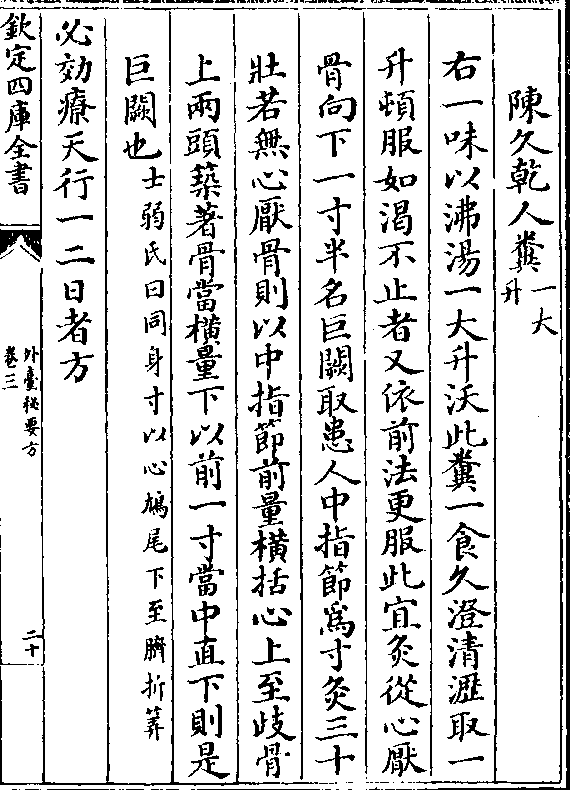 陳久乾人糞一大升
右一味以沸湯一大升沃此糞一食久澄清瀝取一
升頓服如渴不止者又依前法更服此宜灸從心厭
骨向下一寸半名巨闕取患人中指節為寸灸三十
壯若無心厭骨則以中指節前量橫括心上至歧骨
上兩頭築著骨當橫量下以前一寸當中直下則是
巨闕也士弱氏曰同身寸以心鳩尾下至臍折筭
必効療天行一二日者方
欽定四庫全書
外臺秘要方
卷三
二十